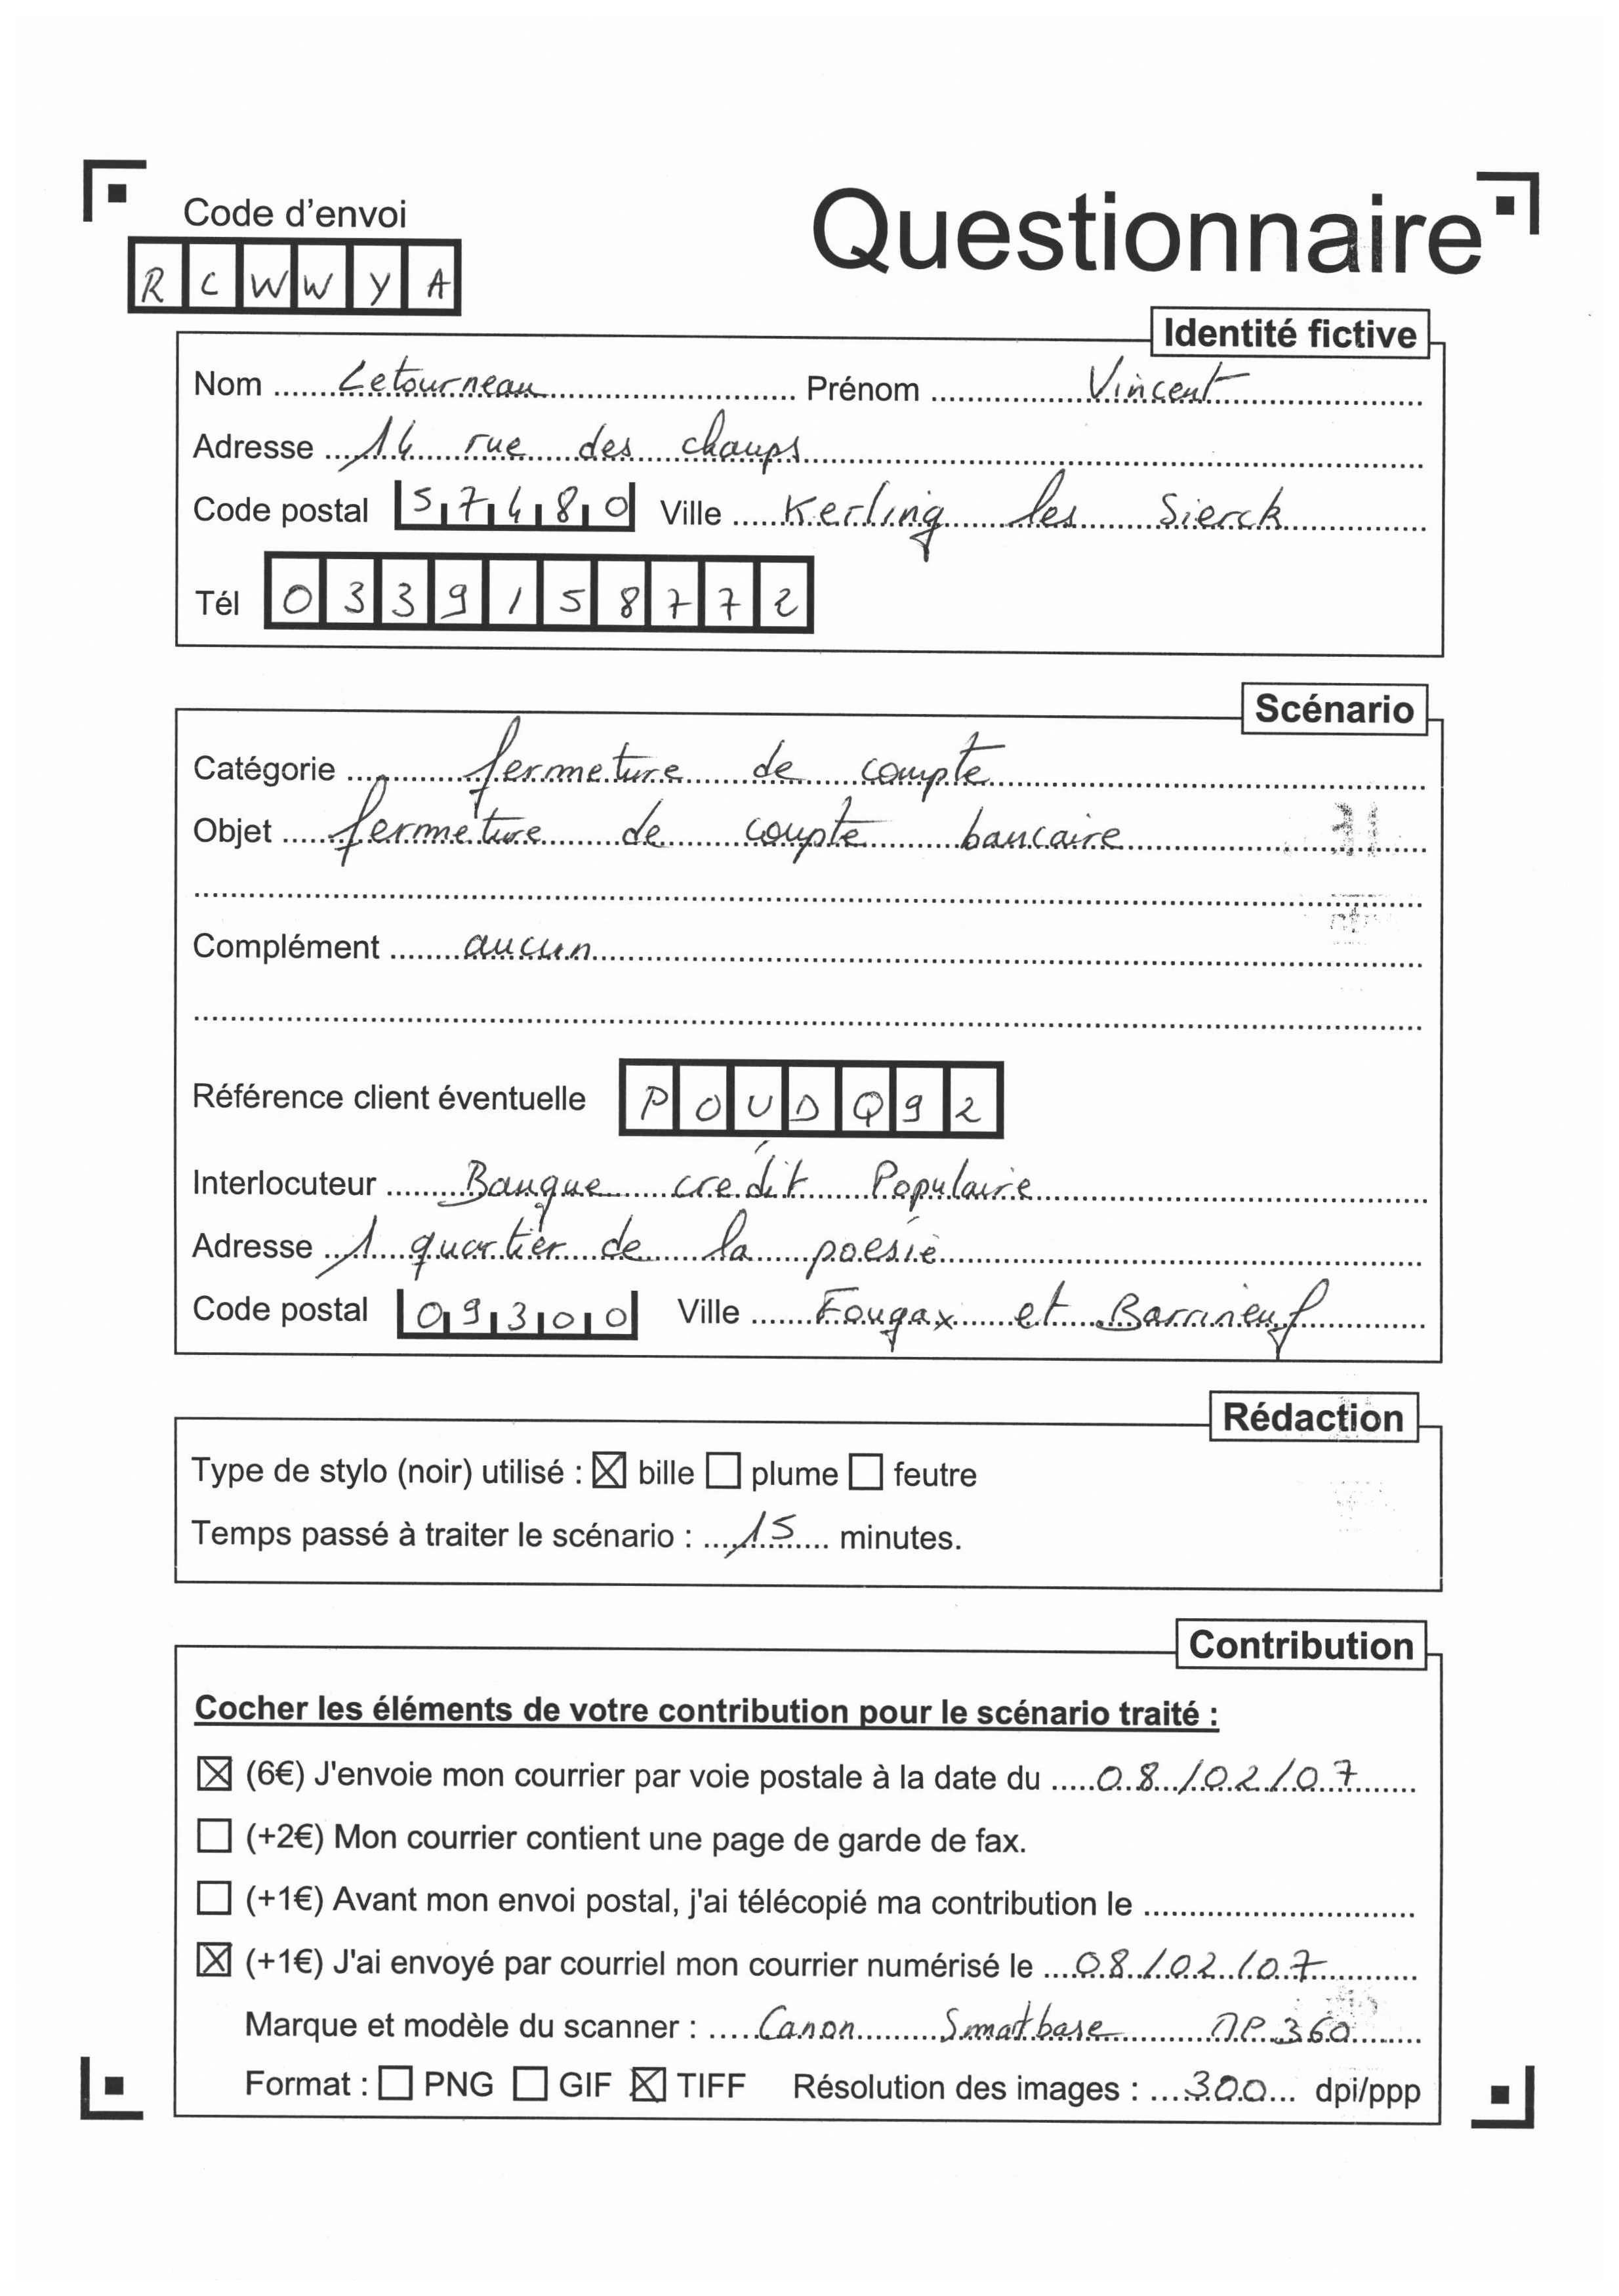 Code d'envoi
Questionnaire
R C W W Y A
Identité fictive
Nom Letourneau Prénom Vincent
Adresse 14 rue des champs
Code postal 57480 Ville Kerling les Sierck
Tél 0339158772
Scénario
Catégorie fermeture de compte
Objet fermeture de compte bancaire
Complément aucun
Référence client éventuelle POUDQ92
Interlocuteur Banque crédit Populaire
Adresse 1 quartier de la poésie
Code postal 09300 Ville Fougax et Barrineuf
Rédaction
Type de stylo (noir) utilisé : ☒ bille ☐ plume ☐ feutre
Temps passé à traiter le scénario : 15 minutes.
Contribution
Cocher les éléments de votre contribution pour le scénario traité :
☒ (6€) J'envoie mon courrier par voie postale à la date du 08/02/07
☐ (+2€) Mon courrier contient une page de garde de fax.
☐ (+1€) Avant mon envoi postal, j'ai télécopié ma contribution le
☒ (+1€) J'ai envoyé par courriel mon courrier numérisé le 08/02/07
Marque et modèle du scanner : Canon Smartbase MP360
Format : ☐ PNG ☐ GIF ☒ TIFF Résolution des images : 300 dpi/ppp